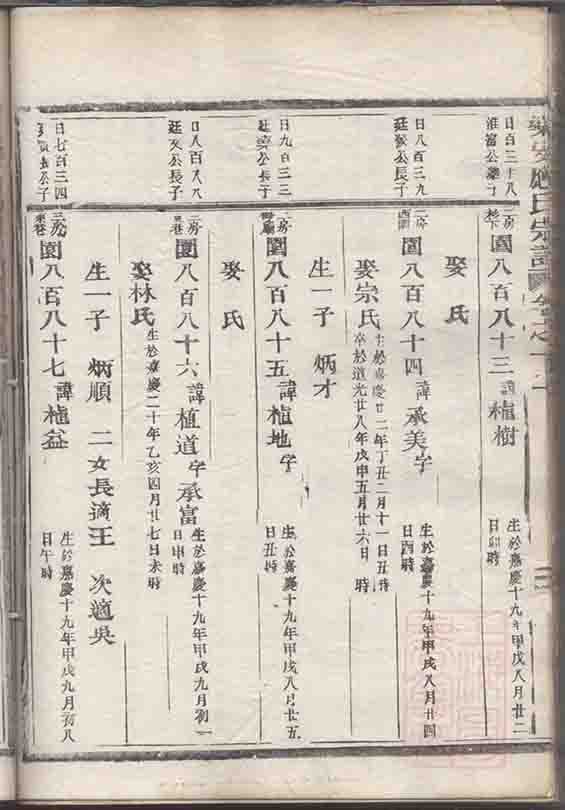 應氏宗譜
日百三十八
淮富公
二房
園八百八十三 諱植樹
生於嘉慶十九年甲戌八月廿二
日卯時
娶 氏
日八百三九
廷 公長子
二房
園八百八十四 諱承美字
生於嘉慶十九年甲戌八月廿四
日酉時
娶宗氏
生於嘉慶廿二年丁丑二月十一日丑時
卒於道光廿八年戊申五月廿六日 時
生一子 炳才
日九百三三
公長子
二房
園八百八十五 諱植地字
生於嘉慶十九年甲戌八月廿五
日丑時
娶 氏
日八百八八
廷 公長子
二房
園八百八十六 諱植道字承富
生於嘉慶十九年甲戌九月初一
日申時
娶林氏
生於嘉慶二十年乙亥四月廿七日未時
生一子 炳順 二女長適王 次適吳
日七百三四
公子
園八百八十七 諱植益
生於嘉慶十九年甲戌九月初八
日午時